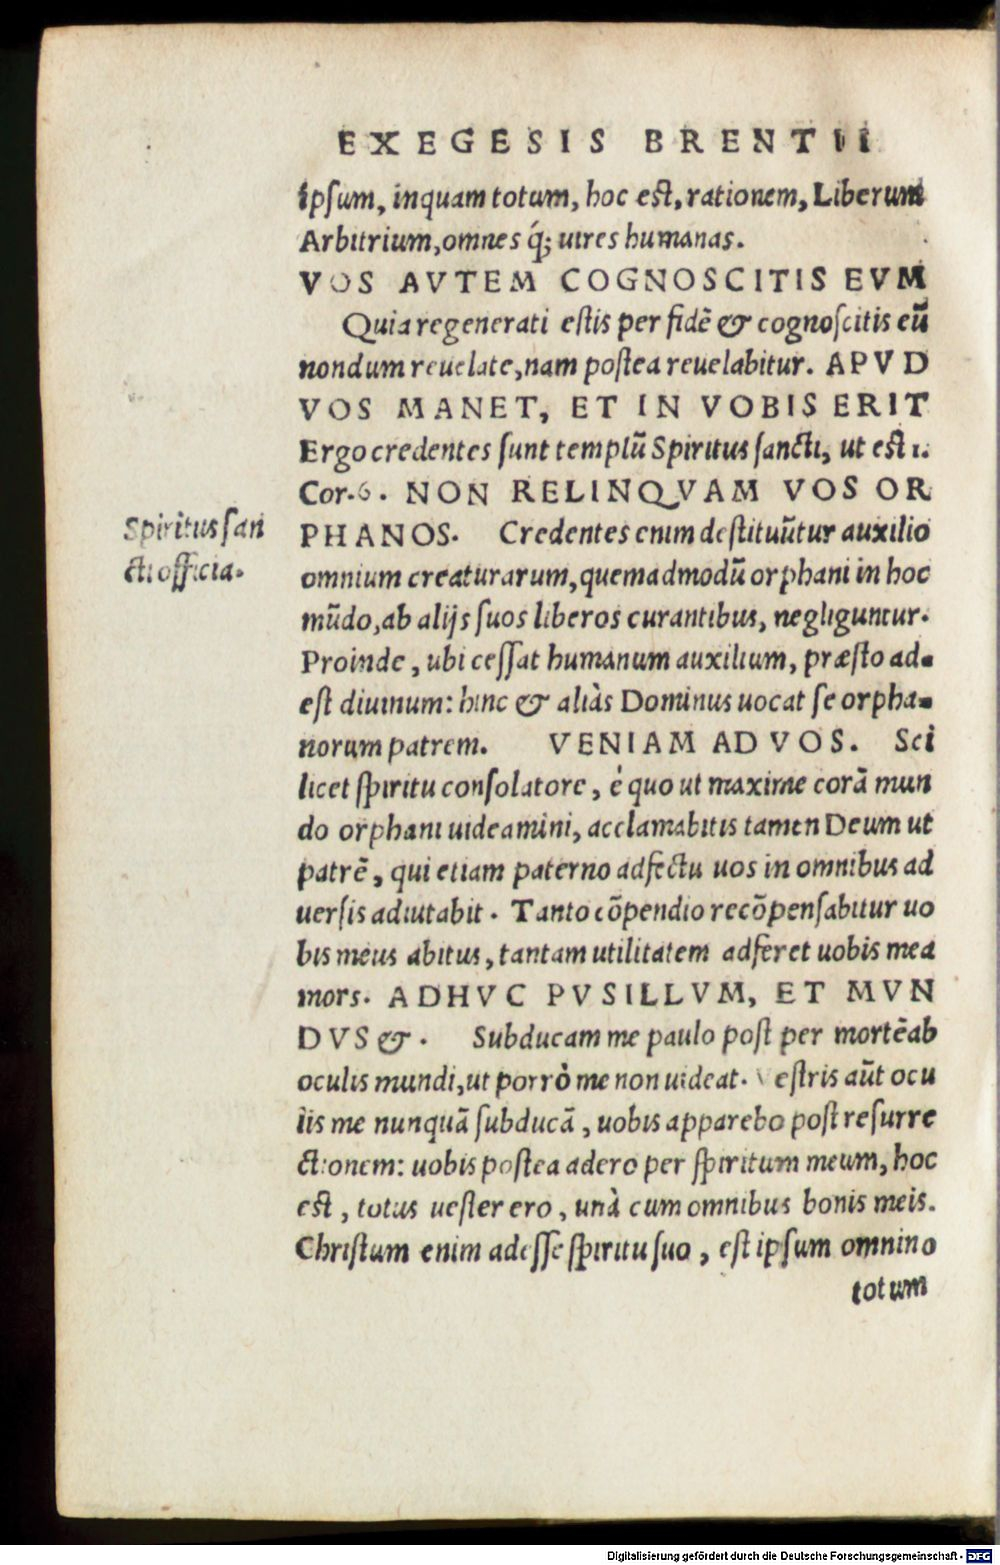 EXEGESIS BRENTII
ipsum, inquam totum, hoc est, rationem, Liberum
Arbitrium, omnes q́; uires humanas.
VOS AVTEM COGNOSCITIS EVM
Quia regenerati estis per fidē & cognoscitis eū
nondum reuelate, nam postea reuelabitur. APVD
VOS MANET, ET IN VOBIS ERIT
Ergo credentes sunt templū Spiritus sancti, ut est 1.
Cor. 6. NON RELINQVAM VOS OR
Spiritus san
cti officia.
PHANOS. Credentes enim destituūtur auxilio
omnium creaturarum, quemadmodū orphani in hoc
mūdo, ab alijs suos liberos curantibus, negliguntur.
Proinde, ubi cessat humanum auxilium, præsto ad-
est diuinum: hinc & aliàs Dominus uocat se orpha-
norum patrem. VENIAM AD VOS. Sci
licet spiritu consolatore, è quo ut maxime corā mun
do orphani uideamini, acclamabitis tamen Deum ut
patrē, qui etiam paterno adfectu uos in omnibus ad
uersis adiutabit. Tanto cōpendio recōpensabitur uo
bis meus abitus, tantam utilitatem adferet uobis mea
mors. ADHVC PVSILLVM, ET MVN
DVS &. Subducam me paulo post per mortē ab
oculis mundi, ut porrò me non uideat. Vestris aūt ocu
lis me nunquā subducā, uobis apparebo post resurre
ctionem: uobis postea adero per spiritum meum, hoc
est, totus uester ero, unà cum omnibus bonis meis.
Christum enim adesse spiritu suo, est ipsum omnino
totum
Digitalisierung gefördert durch die Deutsche Forschungsgemeinschaft - DFG